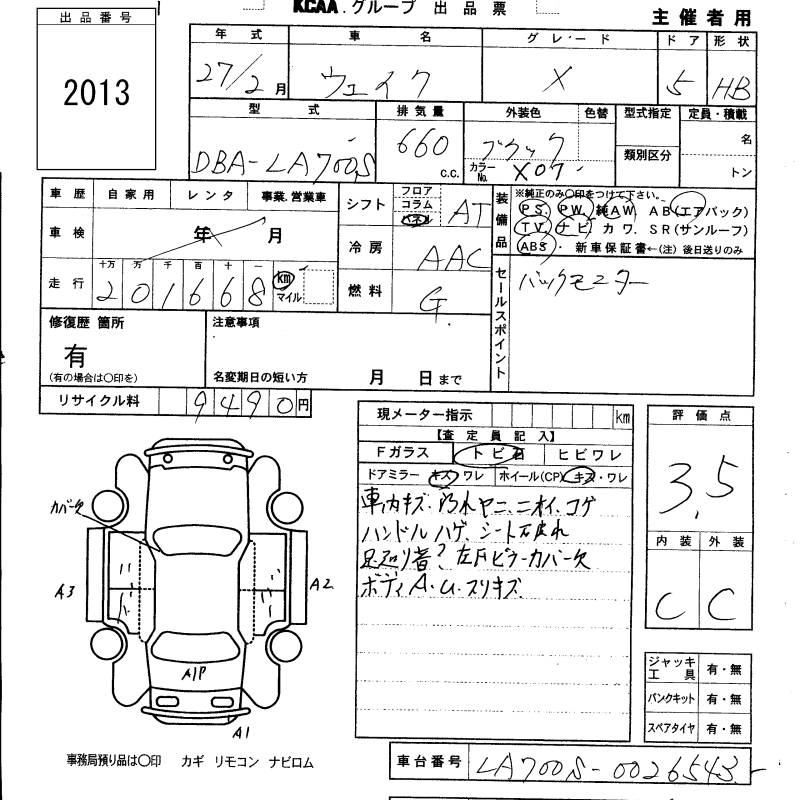 KCAA.グループ 出品票
主催者用
出品番号
2013
年式 車名 グレード ドア 形状
27/2月 ウェイク X 5 HB
型式 排気量 外装色 色替 型式指定 定員・積載
DBA-LA700S 660 c.c. ブラック カラーNo. X07 類別区分 名 トン
車歴 自家用 レンタ 事業.営業車
車検 年 月
走行 十万 万 千 百 十 一
201668 km マイル
シフト フロア コラム パネル AT
冷房 AAC
燃料 G.
装備品
※純正のみ○印をつけて下さい。
P.S. P.W. 純A.W. A B(エアバック)
T V ナビ カワ. S R(サンルーフ)
ABS・新車保証書←(注)後日送りのみ
セールスポイント
バックモニター
修復歴 箇所
有
(有の場合は○印を)
注意事項
名変期日の短い方 月 日まで
リサイクル料 9490円
現メーター指示 km
【査定員記入】
Fガラス トビ石 ヒビワレ
ドアミラー キズ・ワレ ホイール(CP) キズ・ワレ
車内キズ.汚れ ヤニ.ニオイ.コゲ
ハンドルハゲ、シート破れ
足廻り音? 左Fピラーカバー欠
ボディA.U.スリキズ
評価点
3.5
内装 外装
C C
カバー欠
A3
A2
A1P
A1
ジャッキ工具 有・無
パンクキット 有・無
スペアタイヤ 有・無
事務局預り品は○印 カギ リモコン ナビロム
車台番号 LA700S-0026543